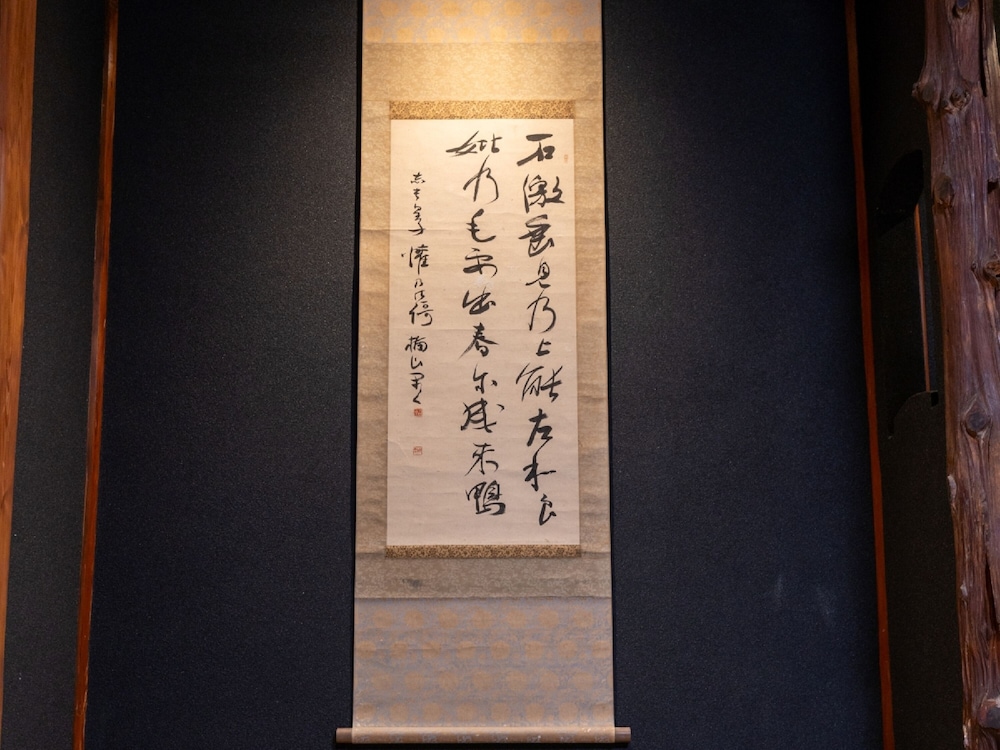 石激垂見乃上能左和良
妣乃毛要出春尓成来鴨
志貴皇子 懽乃御哥 楠山